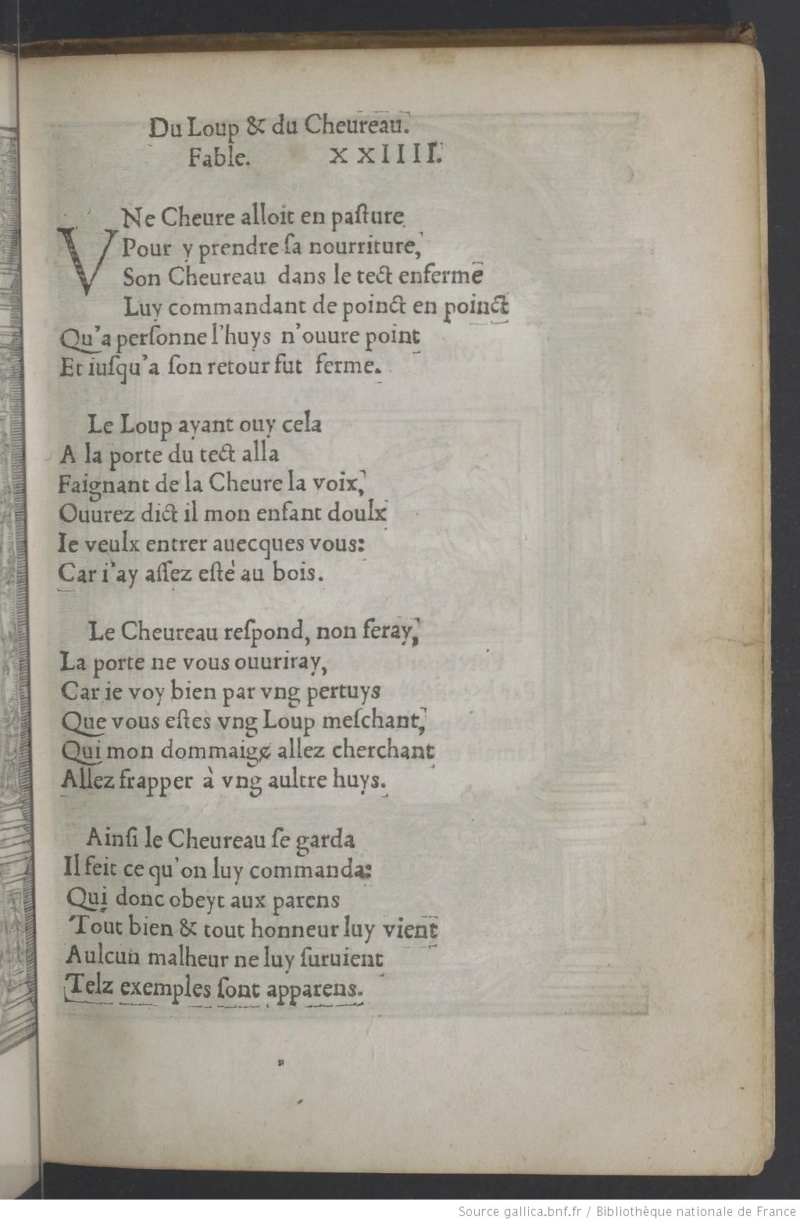 Du Loup & du Cheureau.
Fable. XXIIII.
VNe Cheure alloit en paſture
Pour y prendre ſa nourriture,
Son Cheureau dans le tect enferme
Luy commandant de poinct en poinct
Qu'a perſonne l'huys n'ouure point
Et iuſqu'a ſon retour fut ferme.
Le Loup ayant ouy cela
A la porte du tect alla
Faignant de la Cheure la voix,
Ouurez dict il mon enfant doulx
Ie veulx entrer auecques vous:
Car i'ay aſſez eſté au bois.
Le Cheureau reſpond, non feray,
La porte ne vous ouuriray,
Car ie voy bien par vng pertuys
Que vous eſtes vng Loup meſchant,
Qui mon dommaige allez cherchant
Allez frapper à vng aultre huys.
Ainſi le Cheureau ſe garda
Il feit ce qu'on luy commanda:
Qui donc obeyt aux parens
Tout bien & tout honneur luy vient
Aulcun malheur ne luy ſuruient
Telz exemples ſont apparens.
Source gallica.bnf.fr / Bibliothèque nationale de France